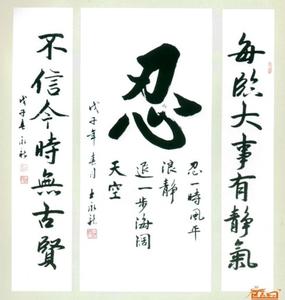 每臨大事有靜氣
忍
忍一時風平
浪靜
退一步海阔
天空
戊子年春月
不信今時無古賢
戊子春